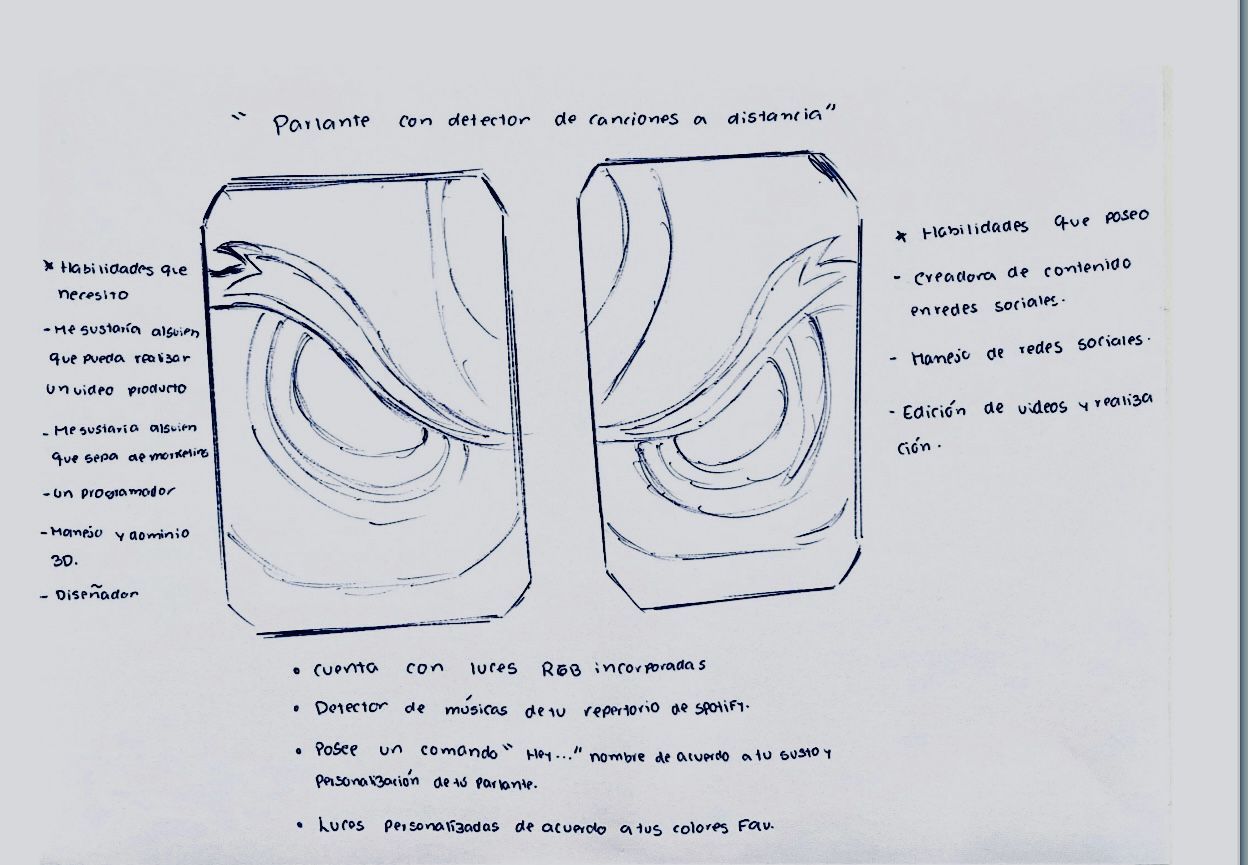 “ Parlante con detector de canciones a distancia”
* Habilidades que
necesito
- Me gustaría alguien
que pueda realizar
un video producto
- Me gustaría alguien
que sepa de marketing
- un programador
- Manejo y dominio
3D.
- Diseñador
* Habilidades que poseo
- Creadora de contenido
en redes sociales.
- Manejo de redes sociales.
- Edición de videos y realiza
ción.
• Cuenta con luces RGB incorporadas
• Detector de músicas de tu repertorio de spotify.
• Posee un comando “ Hey...” nombre de acuerdo a tu gusto y
personalización de tu parlante.
• Luces personalizadas de acuerdo a tus colores Fav.